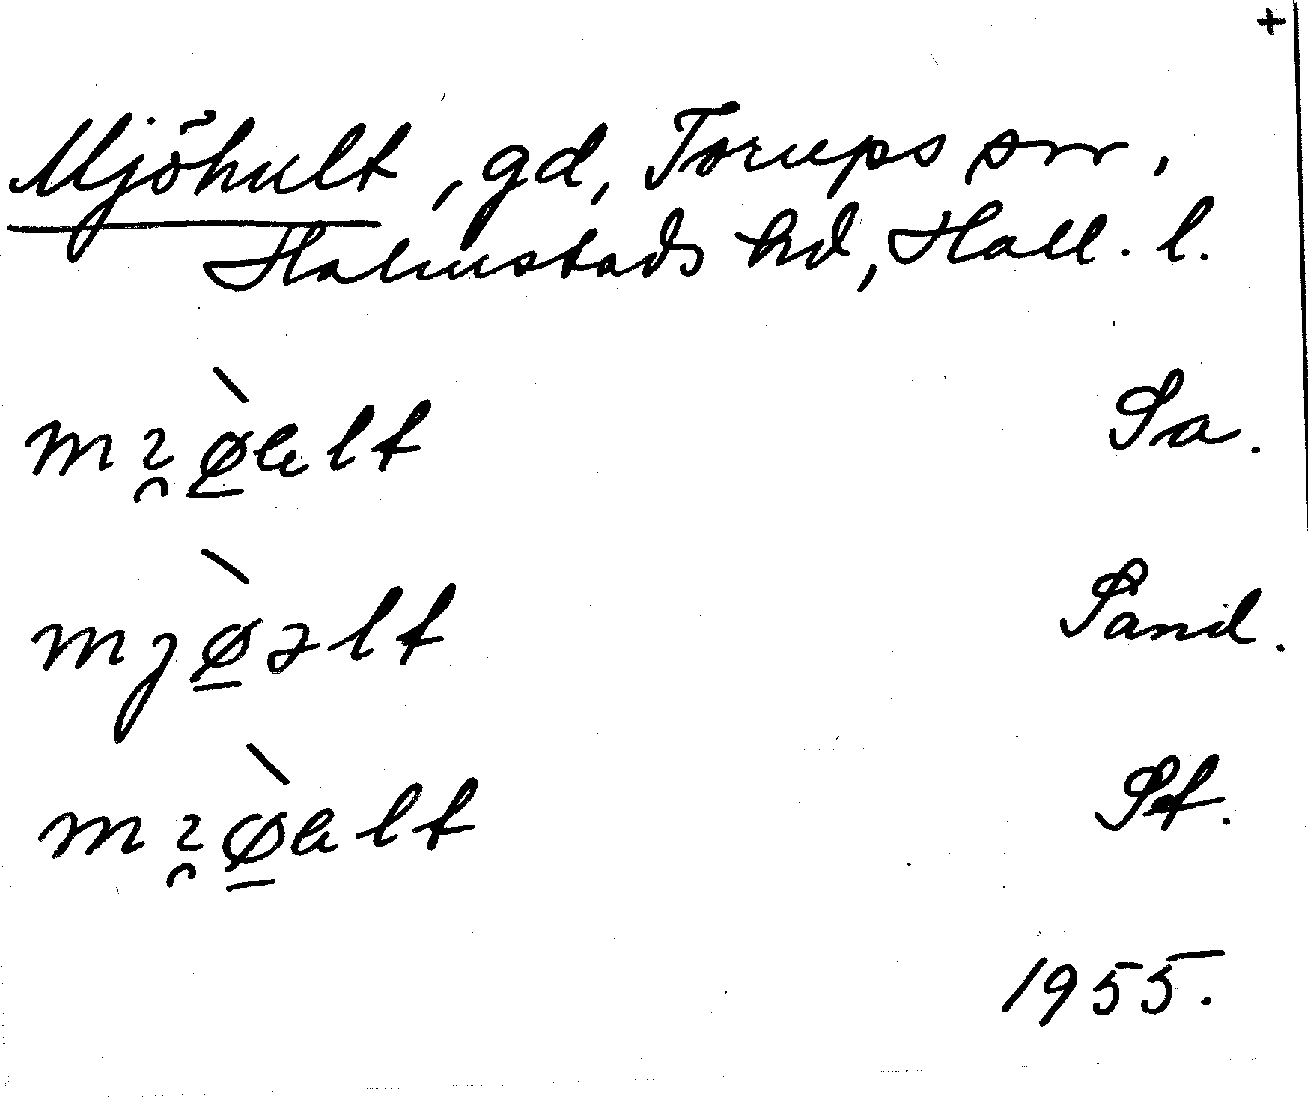 +
Mjöhult, gd, Torups sn,
Halmstads hd, Hall. l.
mı̯ø̠̀ɐlt Sa.
mjø̠̀əlt Sand.
mı̯ø̠̀ɐlt St.
1955.